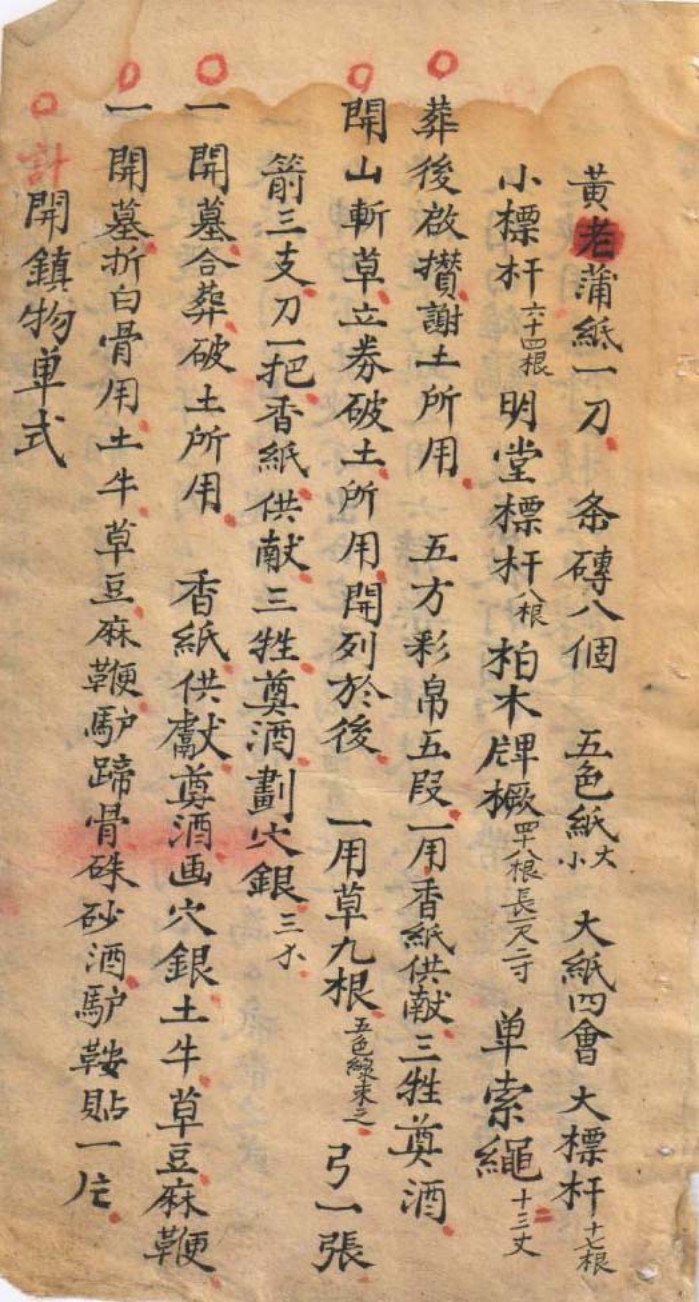 黃老蒲紙一刀　条磚八個　五色紙大小　大紙四會　大標杆十七根
小標杆六十四根　明堂標杆八根　柏木牌橛四十八根長一尺二寸　单索繩十三丈
葬後啟攢謝土所用　五方彩帛五段一用香紙供献三牲奠酒
開山斬草立券破土所用開列於後　一用草九根五色線束之　弓一張
箭三支刀一把香紙供献三牲奠酒劃穴銀三
一開墓合葬破土所用　香紙供獻奠酒画穴銀土牛草豆麻鞭
一開墓拆白骨用土牛草豆麻鞭馿蹄骨硃砂酒馿鞍貼一片
計開鎮物单式